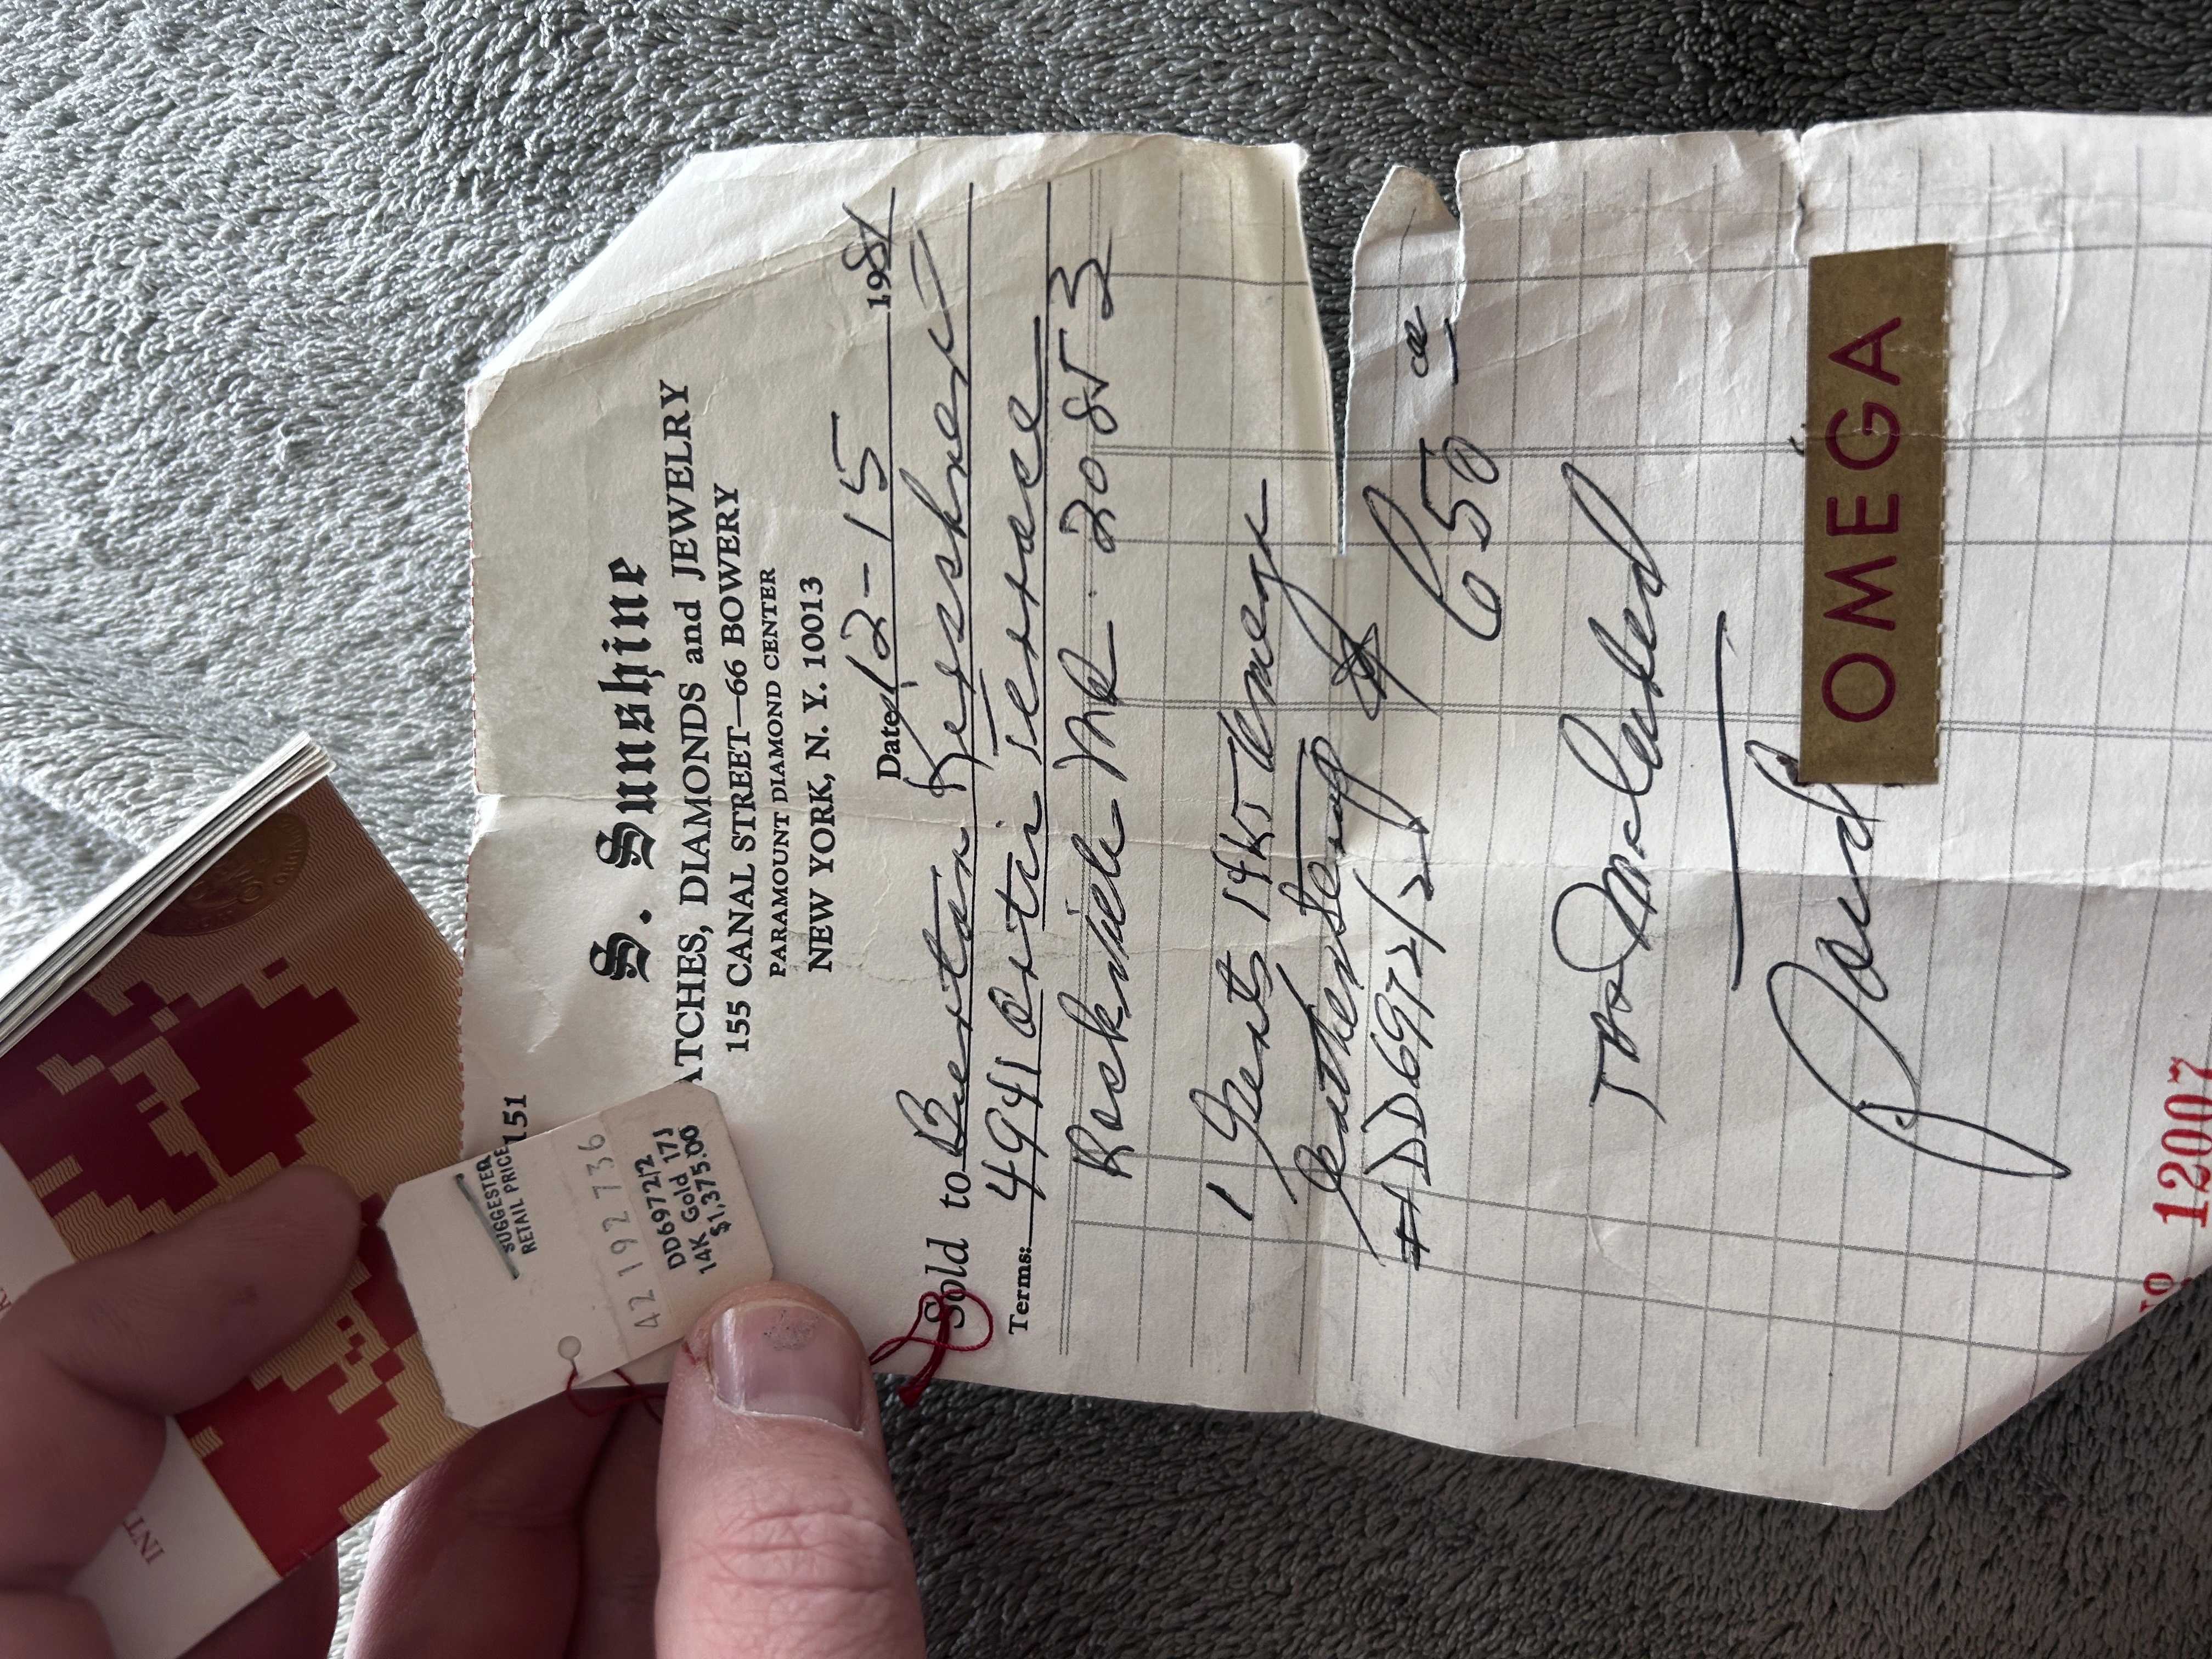 S. Sunshine
ATCHES, DIAMONDS and JEWELRY
155 CANAL STREET—66 BOWERY
PARAMOUNT DIAMOND CENTER
NEW YORK, N. Y. 10013
Date 12-15 1981
Sold to Burton Kirshner
4941 Terrace
Terms:
Rockville Md. 20853
1 Gents 14KT Omega
Leather Strap
#DD6972/2
650
Paid
OMEGA
No 12007
151
SUGGESTED
RETAIL PRICE
42 192 736
DD6972/2
14K Gold 17J
$1,375.00
INT